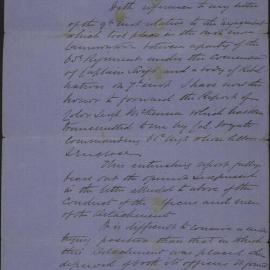 With reference to my letter
of the 9th inst relative to the engagement
which took place in the
between a party of the
65th Regiment under the Command
of Captain Swift and a body of Rebel
natives on 7th inst I have now the
honor to forward the Report of
Color Sergt McKenna which has been
transmitted to me by Col. Wyatt
Commanding 65th Regt
enclosed.
This interesting report fully
bears out the opinion I expressed
in the letter alluded to above of the
Conduct of the Officers and men
of the detachment.
It is difficult to conceive a more
trying position than that in which
this Detachment was placed
deprived of both its officers